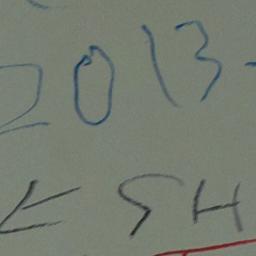 2013-
K SH